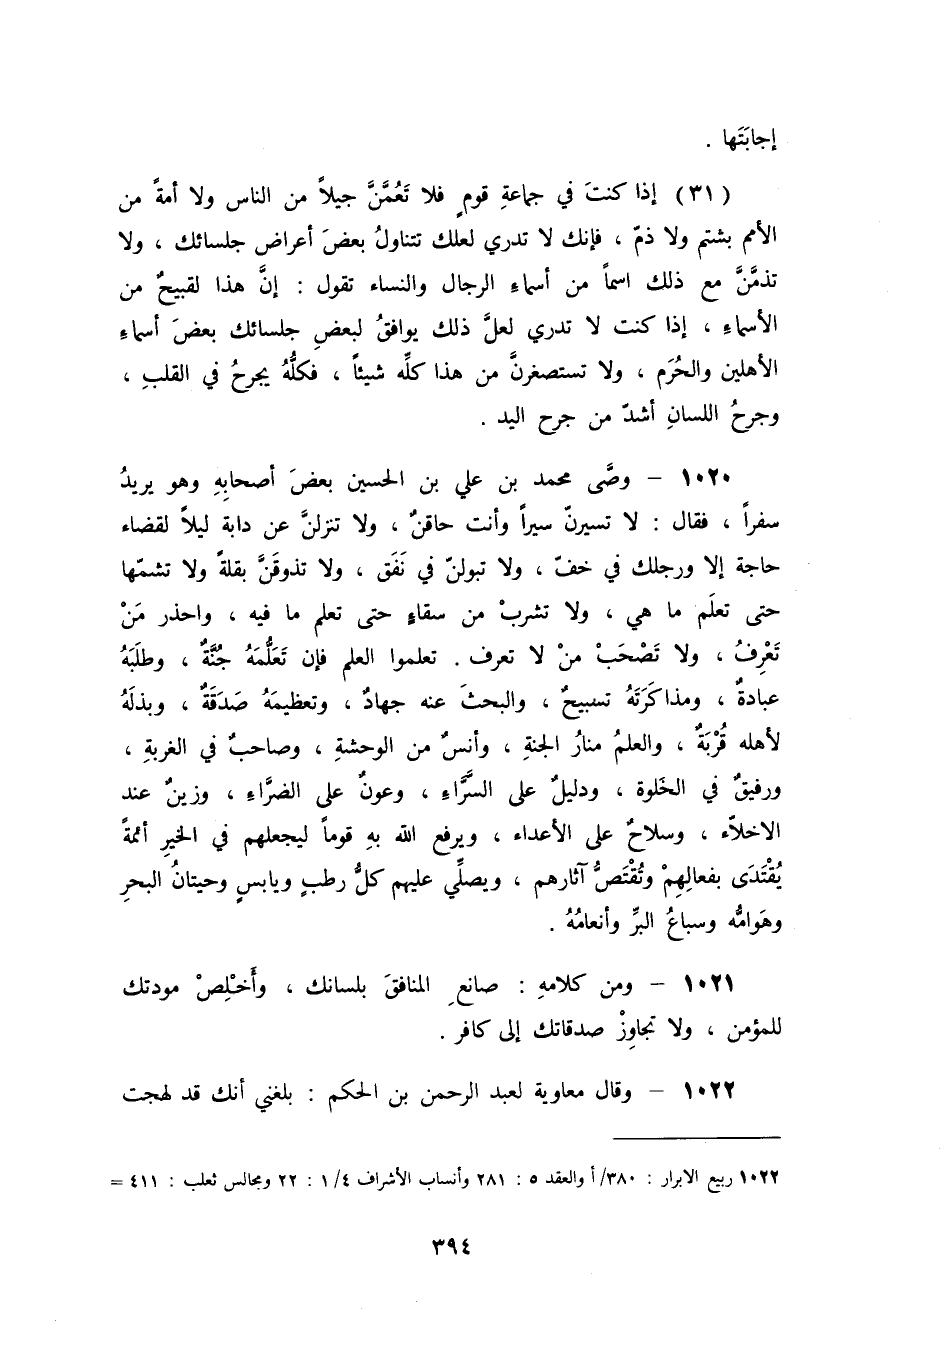 إجابَتَها .
(٣١) إذا كنتَ في جماعةِ قومٍ فلا تَعُمَّنَّ جيلاً من الناس ولا أمةً من
الأمم بشتمٍ ولا ذمّ ، فإنك لا تدري لعلك تتناولُ بعضَ أعراض جلسائك ، ولا
تذمَّنَّ مع ذلك اسماً من أسماءِ الرجال والنساء تقول : إنَّ هذا لقبيحٌ من
الأسماءِ ، إذا كنت لا تدري لعلَّ ذلك يوافقُ لبعضِ جلسائك بعضَ أسماءِ
الأهلين والحُرَم ، ولا تستصغرنَّ من هذا كلِّه شيئاً ، فكلُّهُ يجرحُ في القلبِ ،
وجرحُ اللسانِ أشدّ من جرح اليد .
١٠٢٠ – وصَّى محمد بن علي بن الحسين بعضَ أصحابِهِ وهو يريدُ
سفراً ، فقال : لا تسيرنّ سيراً وأنت حاقنٌ ، ولا تنزلنَّ عن دابة ليلاً لقضاء
حاجة إلا ورجلك في خفّ ، ولا تبولنّ في نَفَق ، ولا تذوقَنَّ بقلةً ولا تشمّها
حتى تعلَم ما هي ، ولا تشربْ من سقاءٍ حتى تعلم ما فيه ، واحذر مَنْ
تَعْرِفُ ، ولا تَصْحَبْ منْ لا تعرف . تعلموا العلم فإن تَعَلُّمَهُ جُنَّةٌ ، وطلَبَهُ
عبادةٌ ، ومذاكَرَتَهُ تسبيحٌ ، والبحثَ عنه جهادٌ ، وتعظيمَهُ صَدَقَةٌ ، وبذلَهُ
لأهله قُرْبَةٌ ، والعلمُ منارُ الجنةِ ، وأنسٌ من الوحشةِ ، وصاحبٌ في الغربةِ ،
ورفيقٌ في الخَلوة ، ودليلٌ على السَّرَّاءِ ، وعونٌ على الضرَّاءِ ، وزينٌ عند
الاخلاّء ، وسلاحٌ على الأعداء ، ويرفع الله بهِ قوماً ليجعلهم في الخيرِ أئمةً
يُقْتَدَى بفعالِهِمْ وتُقْتَصُّ آثارهم ، ويصلِّي عليهم كلُّ رطبٍ ويابسٍ وحيتانُ البحرِ
وهَوامُّه وسباعُ البرِّ وأنعامُهُ .
١٠٢١ – ومن كلامهِ : صانعِ المنافقَ بلسانك ، وأَخلِصْ مودتك
للمؤمن ، ولا تجاوِزْ صدقاتك إلى كافر .
١٠٢٢ – وقال معاوية لعبد الرحمن بن الحكم : بلغني أنك قد لهجت
١٠٢٢ ربيع الابرار : ٣٨٠/أ والعقد ٥ : ٢٨١ وأنساب الأشراف ١/٤ : ٢٢ ومجالس ثعلب : ٤١١ =
٣٩٤